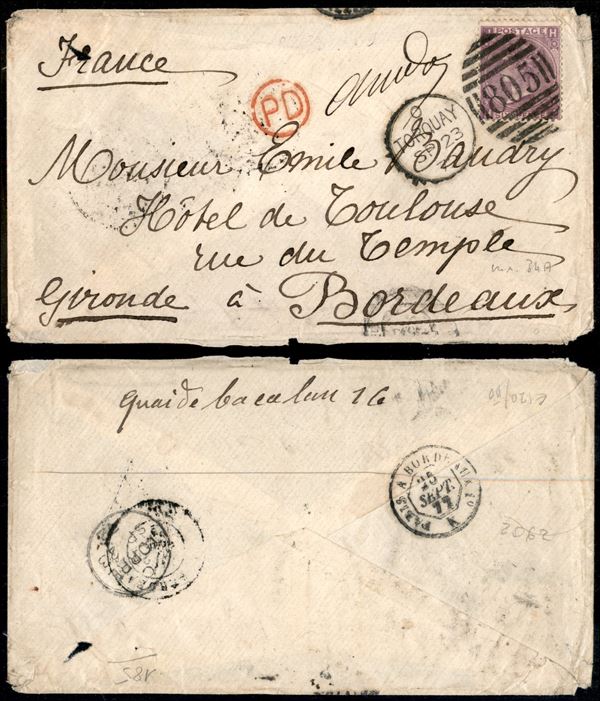 France
PD
TORQUAY
23
805
POSTAGE
Monsieur Emile Baudry
Hôtel de Toulouse
rue du Temple
Gironde à Bordeaux
quai de bacalan 16
PARIS A BORDEAUX
25
SEPT.
77